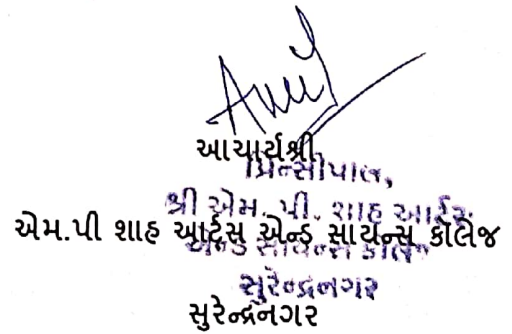 આચાર્યશ્રી
પ્રિન્સીપાલ,
શ્રી એમ. પી. શાહ આર્ટસ
એમ.પી શાહ આર્ટસ એન્ડ સાયન્સ કૉલેજ
એન્ડ સાયન્સ કોલેજ
સુરેન્દ્રનગર
સુરેન્દ્રનગર